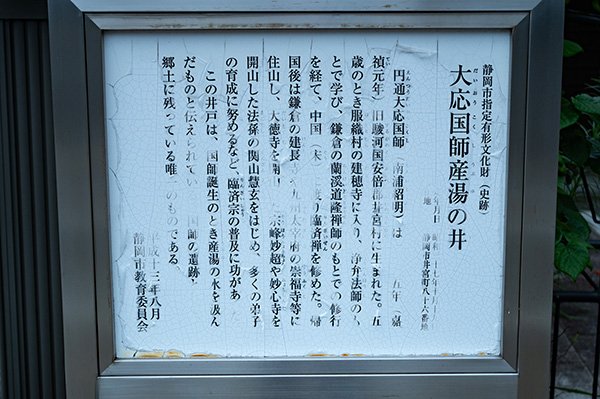 静岡市指定有形文化財（史跡）
大応国師産湯の井
だいおうこくしうぶゆ
年月日 昭和 十七年十月十
地 静岡市井宮町八十六番地
円通大応国師（南浦紹明）は 五年（嘉
禎元年）旧駿河国安倍郡井宮村に生まれた。五
歳のとき服織村の建穂寺に入り、浄弁法師のも
とで学び、鎌倉の蘭溪道隆禅師のもとでの修行
を経て、中国（宋）に渡り臨済禅を修めた。帰
国後は鎌倉の建長 九州太宰府の崇福寺等に
住山し、大徳寺を開 た宗峰妙超や妙心寺を
開山した法孫の関山慧玄をはじめ、多くの弟子
の育成に努めるなど、臨済宗の普及に功があ
この井戸は、国師誕生のとき産湯の水を汲ん
だものと伝えられてい 国師の遺跡
郷土に残っている唯一のものである。
平成 三年八月
静岡市教育委員会